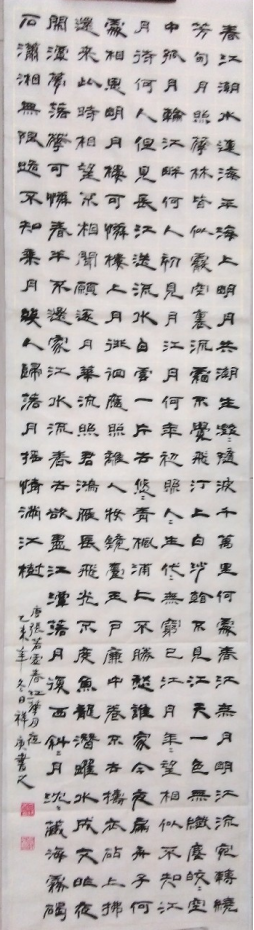 春江潮水連海平海上明月共潮生灔〻隨波千萬里何處春江無月明江流宛轉繞
芳甸月照華林皆似霰空裏流霜不覺飛汀上白沙看不見江天一色無纖塵皎〻空
中孤月輪江畔何人初見月江月何年初照人〻生代〻無窮已江月年〻望相似不知江
月待何人但見長江送流水白雲一片去悠〻青楓浦上不勝愁誰家今夜扁舟子何
處相思明月樓可憐樓上月徘徊應照離人妝鏡臺玉戶簾中卷不去擣衣砧上拂
還來此時相望不相聞願逐月華流照君鴻雁長飛光不度魚龍潛躍水成文昨夜
閑潭夢落華可憐春半不還家江水流春去欲盡江潭落月復西斜〻月沈〻藏海霧碣
石瀟湘無限路不知乘月幾人歸落月搖情滿江樹
唐張若虛春江華月夜
乙未年冬日祥庚書之